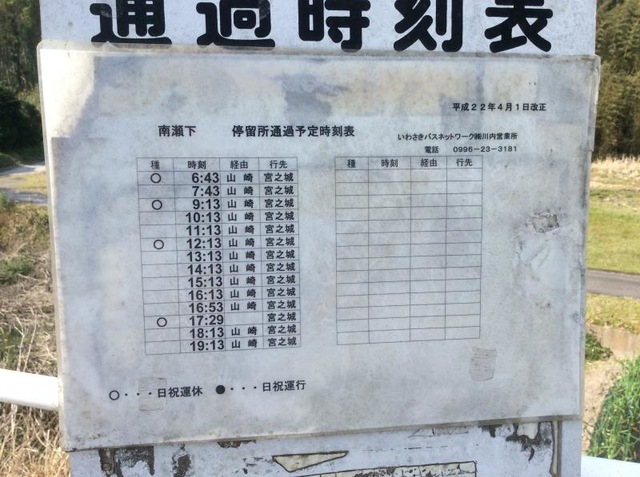 通過時刻表
平成22年4月1日改正
南瀬下 停留所通過予定時刻表 いわさきバスネットワーク㈱川内営業所
電話 0996-23-3181
種 時刻 経由 行先 種 時刻 経由 行先
○ 6:43 山崎 宮之城
7:43 山崎 宮之城
○ 9:13 山崎 宮之城
10:13 山崎 宮之城
11:13 山崎 宮之城
○ 12:13 山崎 宮之城
13:13 山崎 宮之城
14:13 山崎 宮之城
15:13 山崎 宮之城
16:13 山崎 宮之城
16:53 山崎 宮之城
○ 17:29 宮之城
18:13 山崎 宮之城
19:13 山崎 宮之城
○・・・日祝運休 ●・・・日祝運行